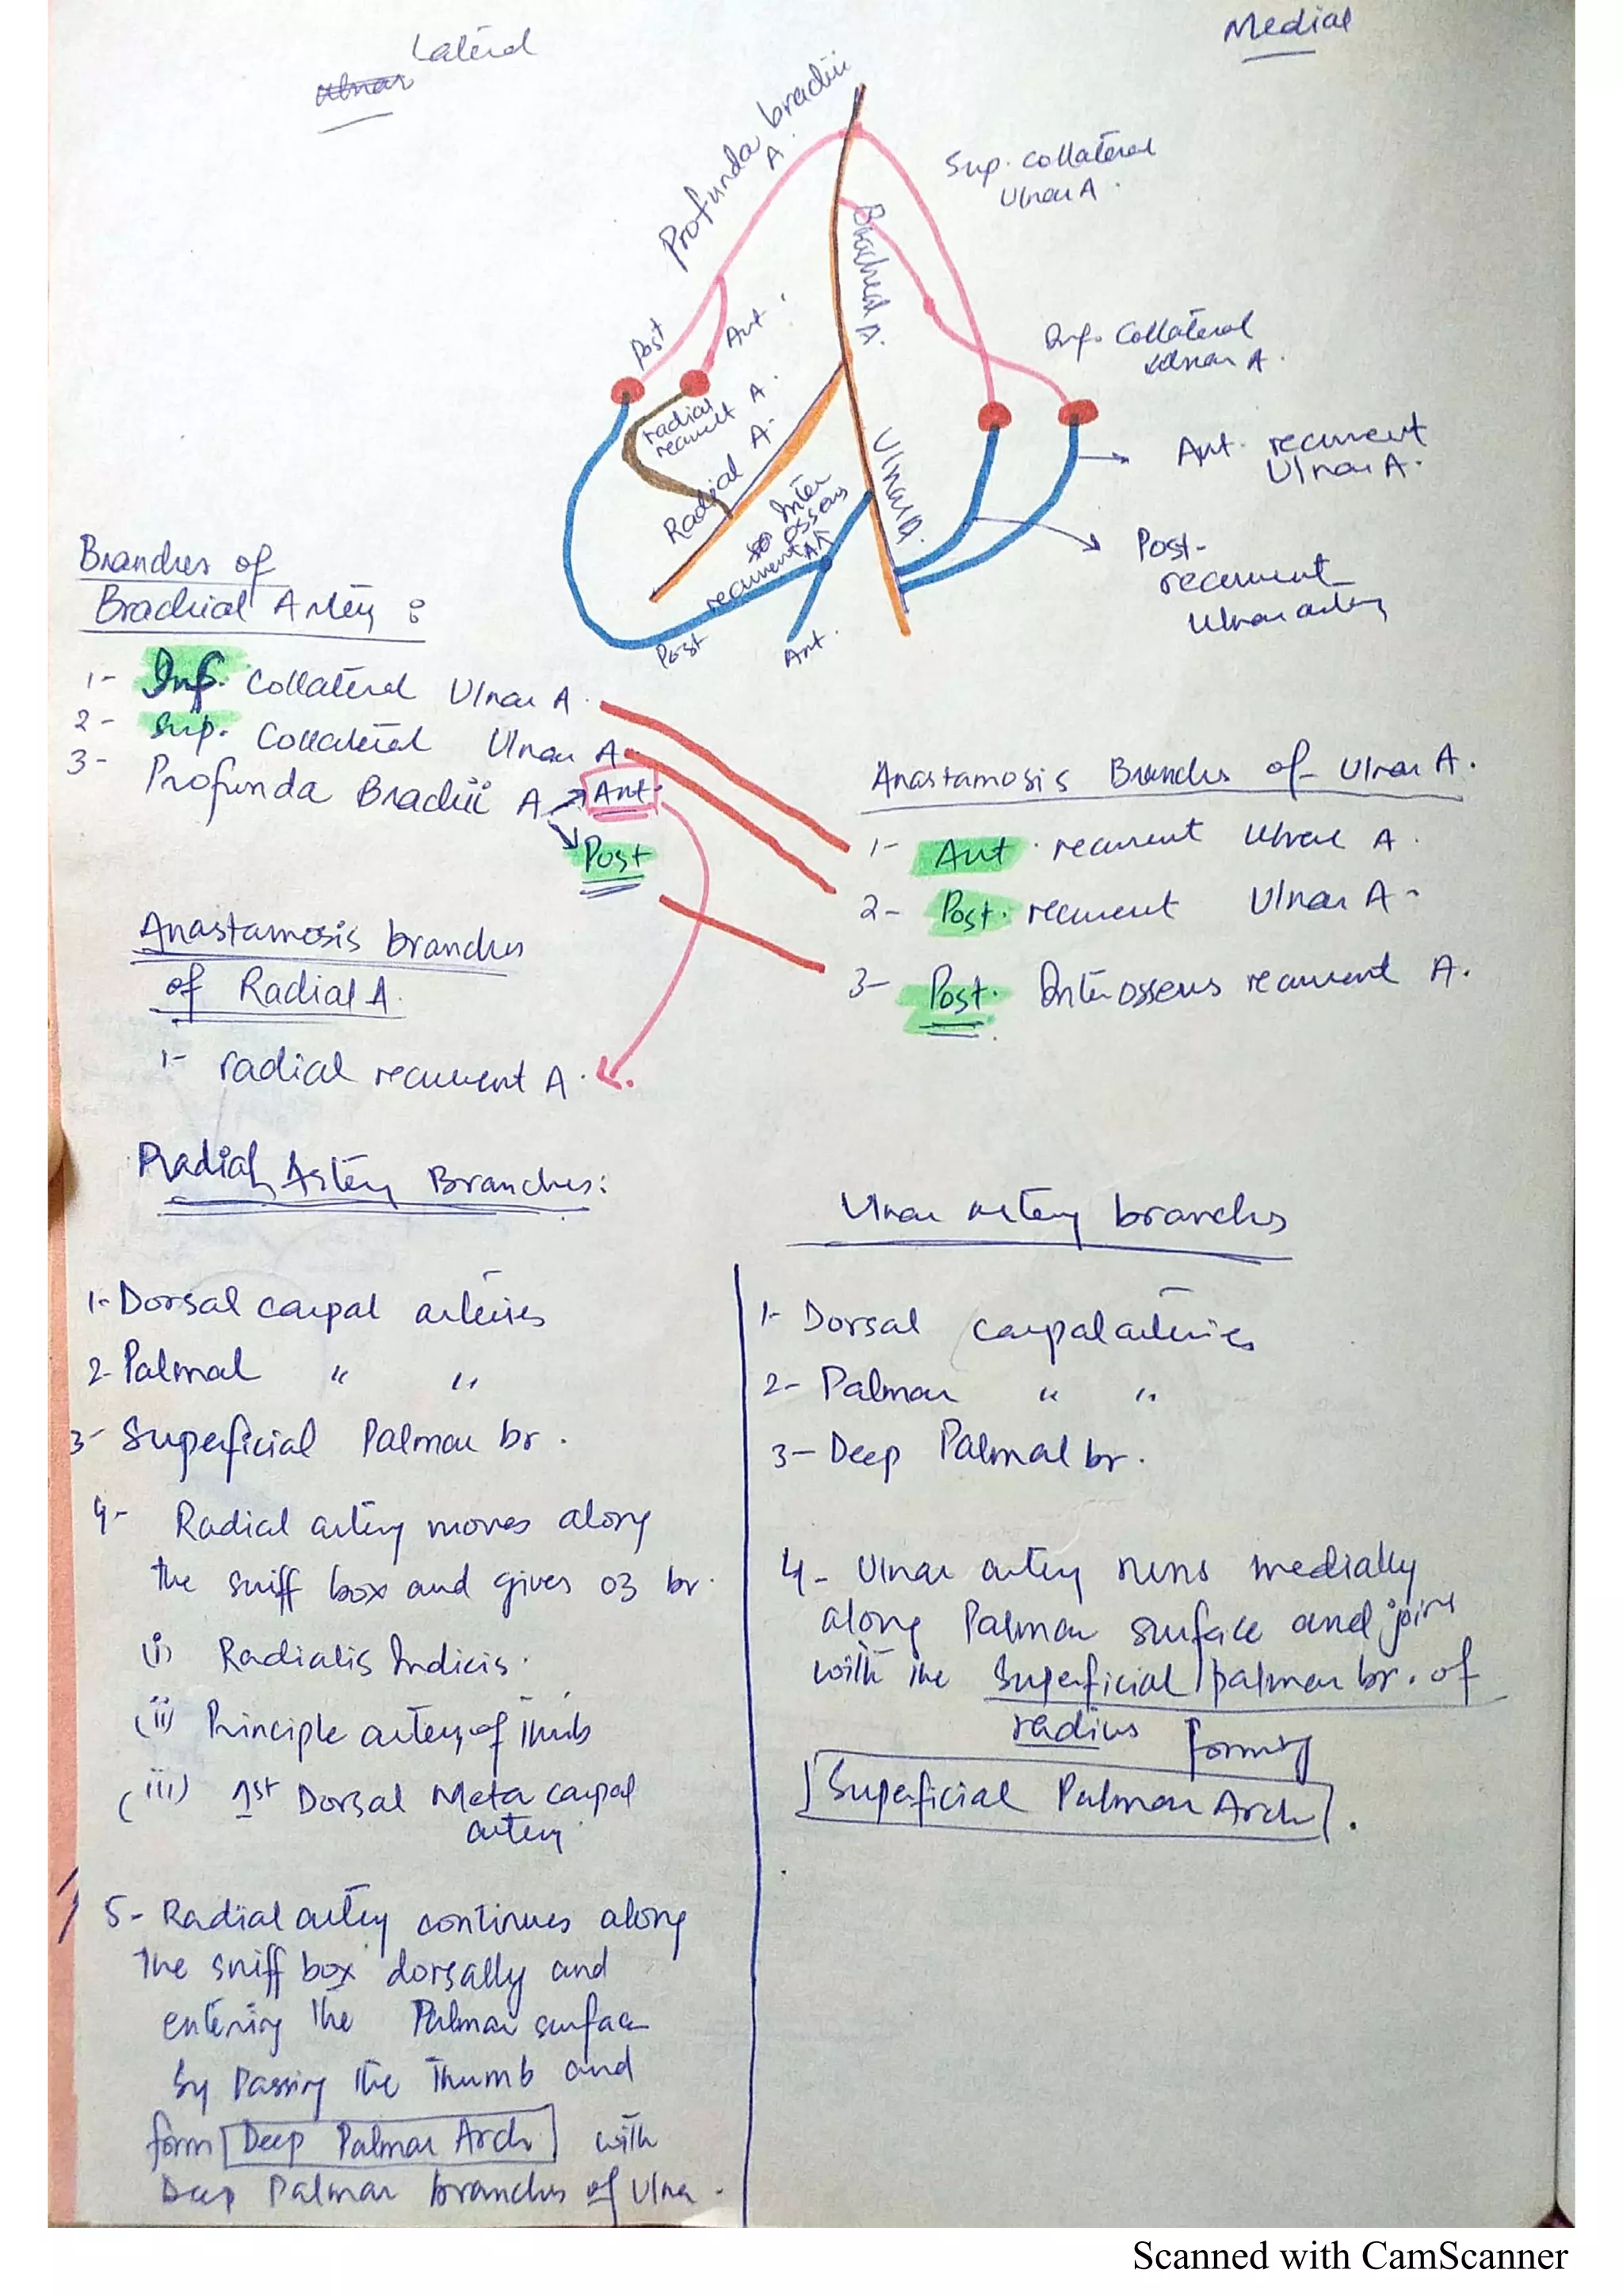 Lateral
Ulnar
Medial
Profunda brachii
A.
Sup. Collateral
Ulnar A.
Brachial A.
Post
Ant.
Inf. Collateral
Ulnar A.
radial
recurrent A.
Radial A.
Ulnar A.
Inter
osseus
recurrent A
Post
Ant.
Ant. recurrent
Ulnar A.
Post-
recurrent
Ulnar artery
Branches of
Brachial Artery :
1- Inf. Collateral Ulnar A.
2- Sup. Collateral Ulnar A.
3- Profunda Brachii A → Ant.
Post
Anastamosis Branches of Ulnar A.
1- Ant. recurrent Ulnar A.
2- Post. recurrent Ulnar A-
3- Post. Interosseus recurrent A.
Anastamosis branches
of Radial A.
1- radial recurrent A.
Radial Artery Branches:
1- Dorsal carpal arteries
2- Palmal " "
3- Superficial Palmar br.
4- Radial artery moves along
the sniff box and gives 03 br.
(i) Radialis Indicis.
(ii) Principle artery of Thmb
(iii) 1st Dorsal Meta carpal
artery
5- Radial artery continues along
the sniff box dorsally and
entering the Palmar surface
by passing the Thumb and
form Deep Palmar Arch with
Deep Palmar branches of Ulna.
Ulnar artery branches
1- Dorsal carpal arteries
2- Palmar " "
3- Deep Palmal br.
4- Ulnar artery runs medially
along Palmar surface and joins
with the Superficial palmar br. of
radius forming
Superficial Palmar Arch.
Scanned with CamScanner